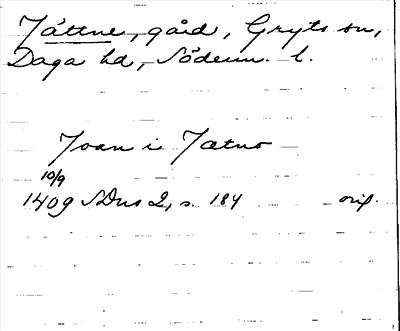 Jättne, gård, Gryts sn,
Daga hd, Söderm. l.
Joan i Jætno
10/9
1409 SDns 2, s. 184 orig.